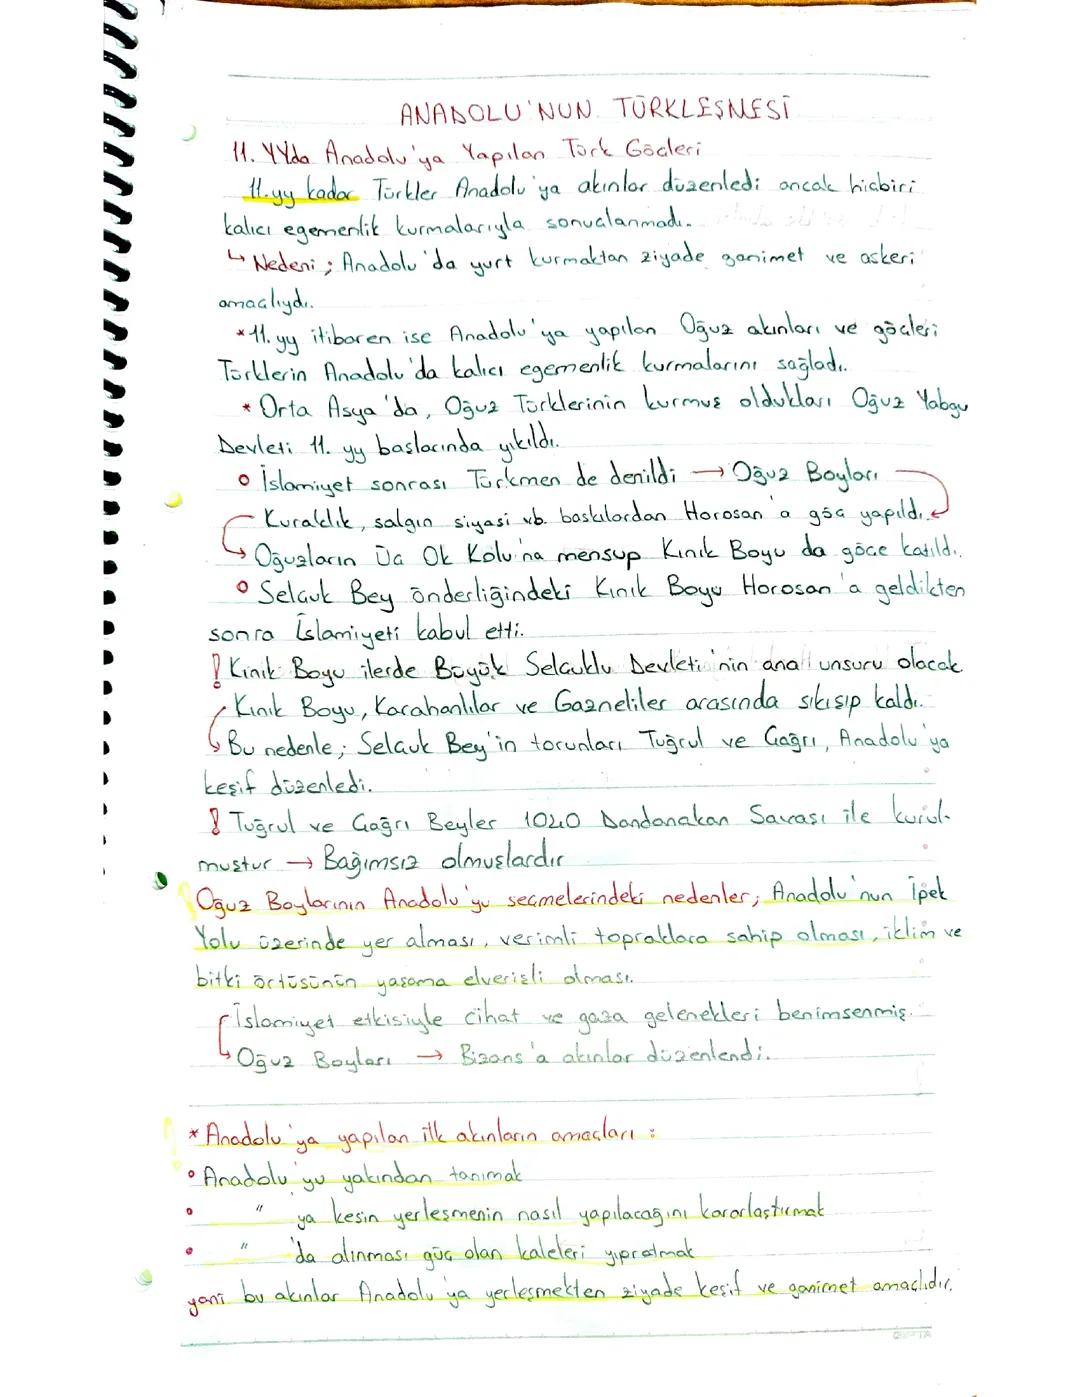 ANADOLU'NUN TÜRKLEŞMESİ
11. YYda Anadolu'ya Yapılan Türk Göçleri
11.yy kadar Türkler Anadolu'ya akınlar düzenledi ancak hiçbiri
kalıcı egemenlik kurmalarıyla sonuçlanmadı.
↳ Nedeni; Anadolu'da yurt kurmaktan ziyade ganimet ve askeri
amaçlıydı.
*11. yy itibaren ise Anadolu'ya yapılan Oğuz akınları ve göçleri
Türklerin Anadolu'da kalıcı egemenlik kurmalarını sağladı.
* Orta Asya'da, Oğuz Türklerinin kurmuş oldukları Oğuz Yabgu
Devleti 11. yy başlarında yıkıldı.
o İslamiyet sonrası Türkmen de denildi → Oğuz Boyları
Kuraklık, salgın siyasi vb. baskılardan Horosan'a göç yapıldı.
↳ Oğuzların Üç Ok Kolu'na mensup Kınık Boyu da göçe katıldı.
o Selçuk Bey önderliğindeki Kınık Boyu Horosan'a geldikten
sonra İslamiyeti kabul etti.
! Kınık Boyu ilerde Büyük Selçuklu Devleti'nin ana unsuru olacak
Kınık Boyu, Karahanlılar ve Gazneliler arasında sıkışıp kaldı.
↳ Bu nedenle; Selçuk Bey'in torunları Tuğrul ve Çağrı, Anadolu'ya
keşif düzenledi.
! Tuğrul ve Çağrı Beyler 1040 Dandanakan Savaşı ile kurul-
muştur → Bağımsız olmuşlardır
Oğuz Boylarının Anadolu'yu seçmelerindeki nedenler; Anadolu'nun İpek
Yolu üzerinde yer alması, verimli topraklara sahip olması, iklim ve
bitki örtüsünün yaşama elverişli olması.
İslamiyet etkisiyle cihat ve gaza gelenekleri benimsenmiş.
↳ Oğuz Boyları → Bizans'a akınlar düzenlendi.
* Anadolu'ya yapılan ilk akınların amaçları:
o Anadolu'yu yakından tanımak
o " ya kesin yerleşmenin nasıl yapılacağını kararlaştırmak
o " 'da alınması güç olan kaleleri yıpratmak
yani bu akınlar Anadolu'ya yerleşmekten ziyade keşif ve ganimet amaçlıdır.